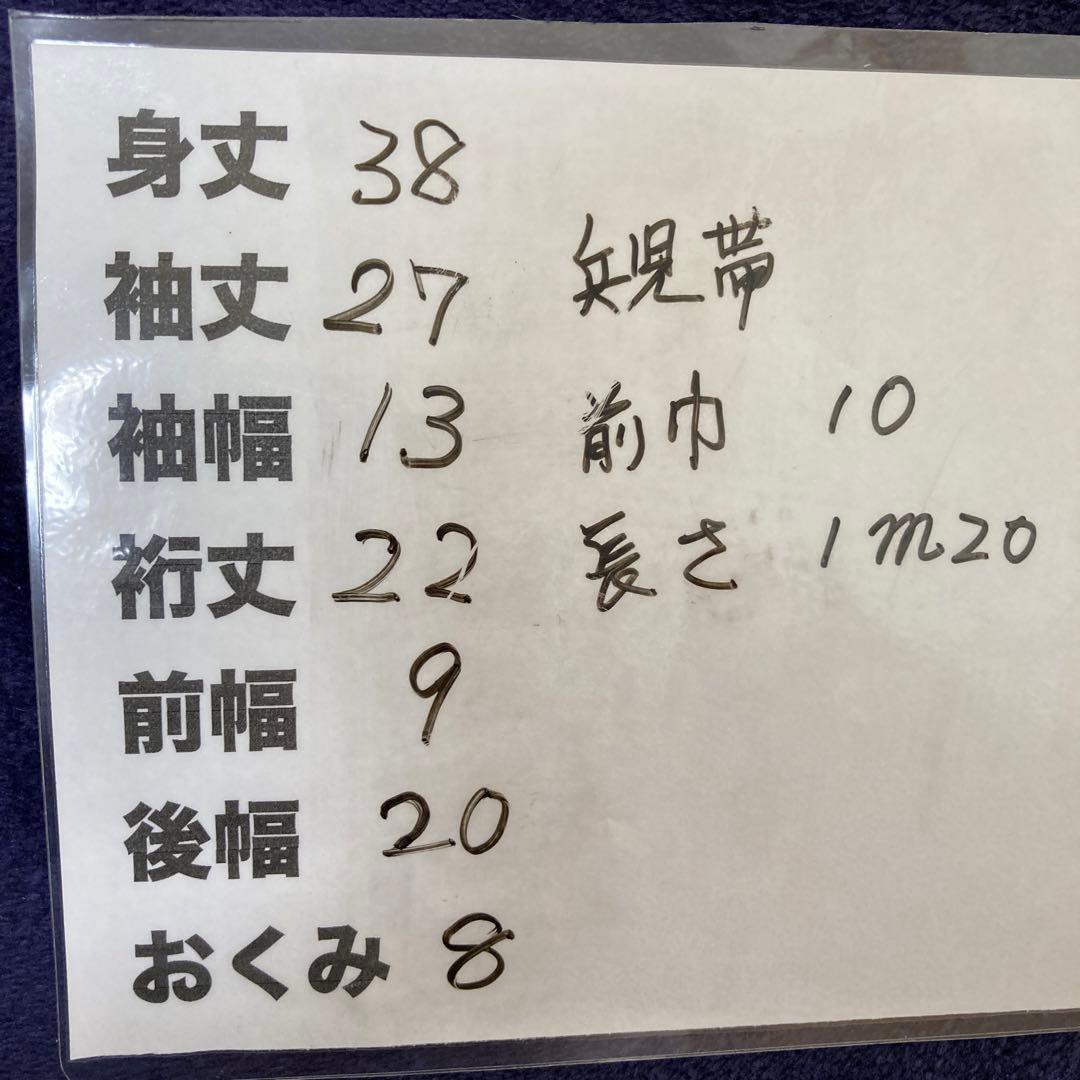 身丈 38
袖丈 27
袖幅 13
裄丈 22
前幅 9
後幅 20
おくみ 8
兵児帯
前巾 10
長さ 1m20